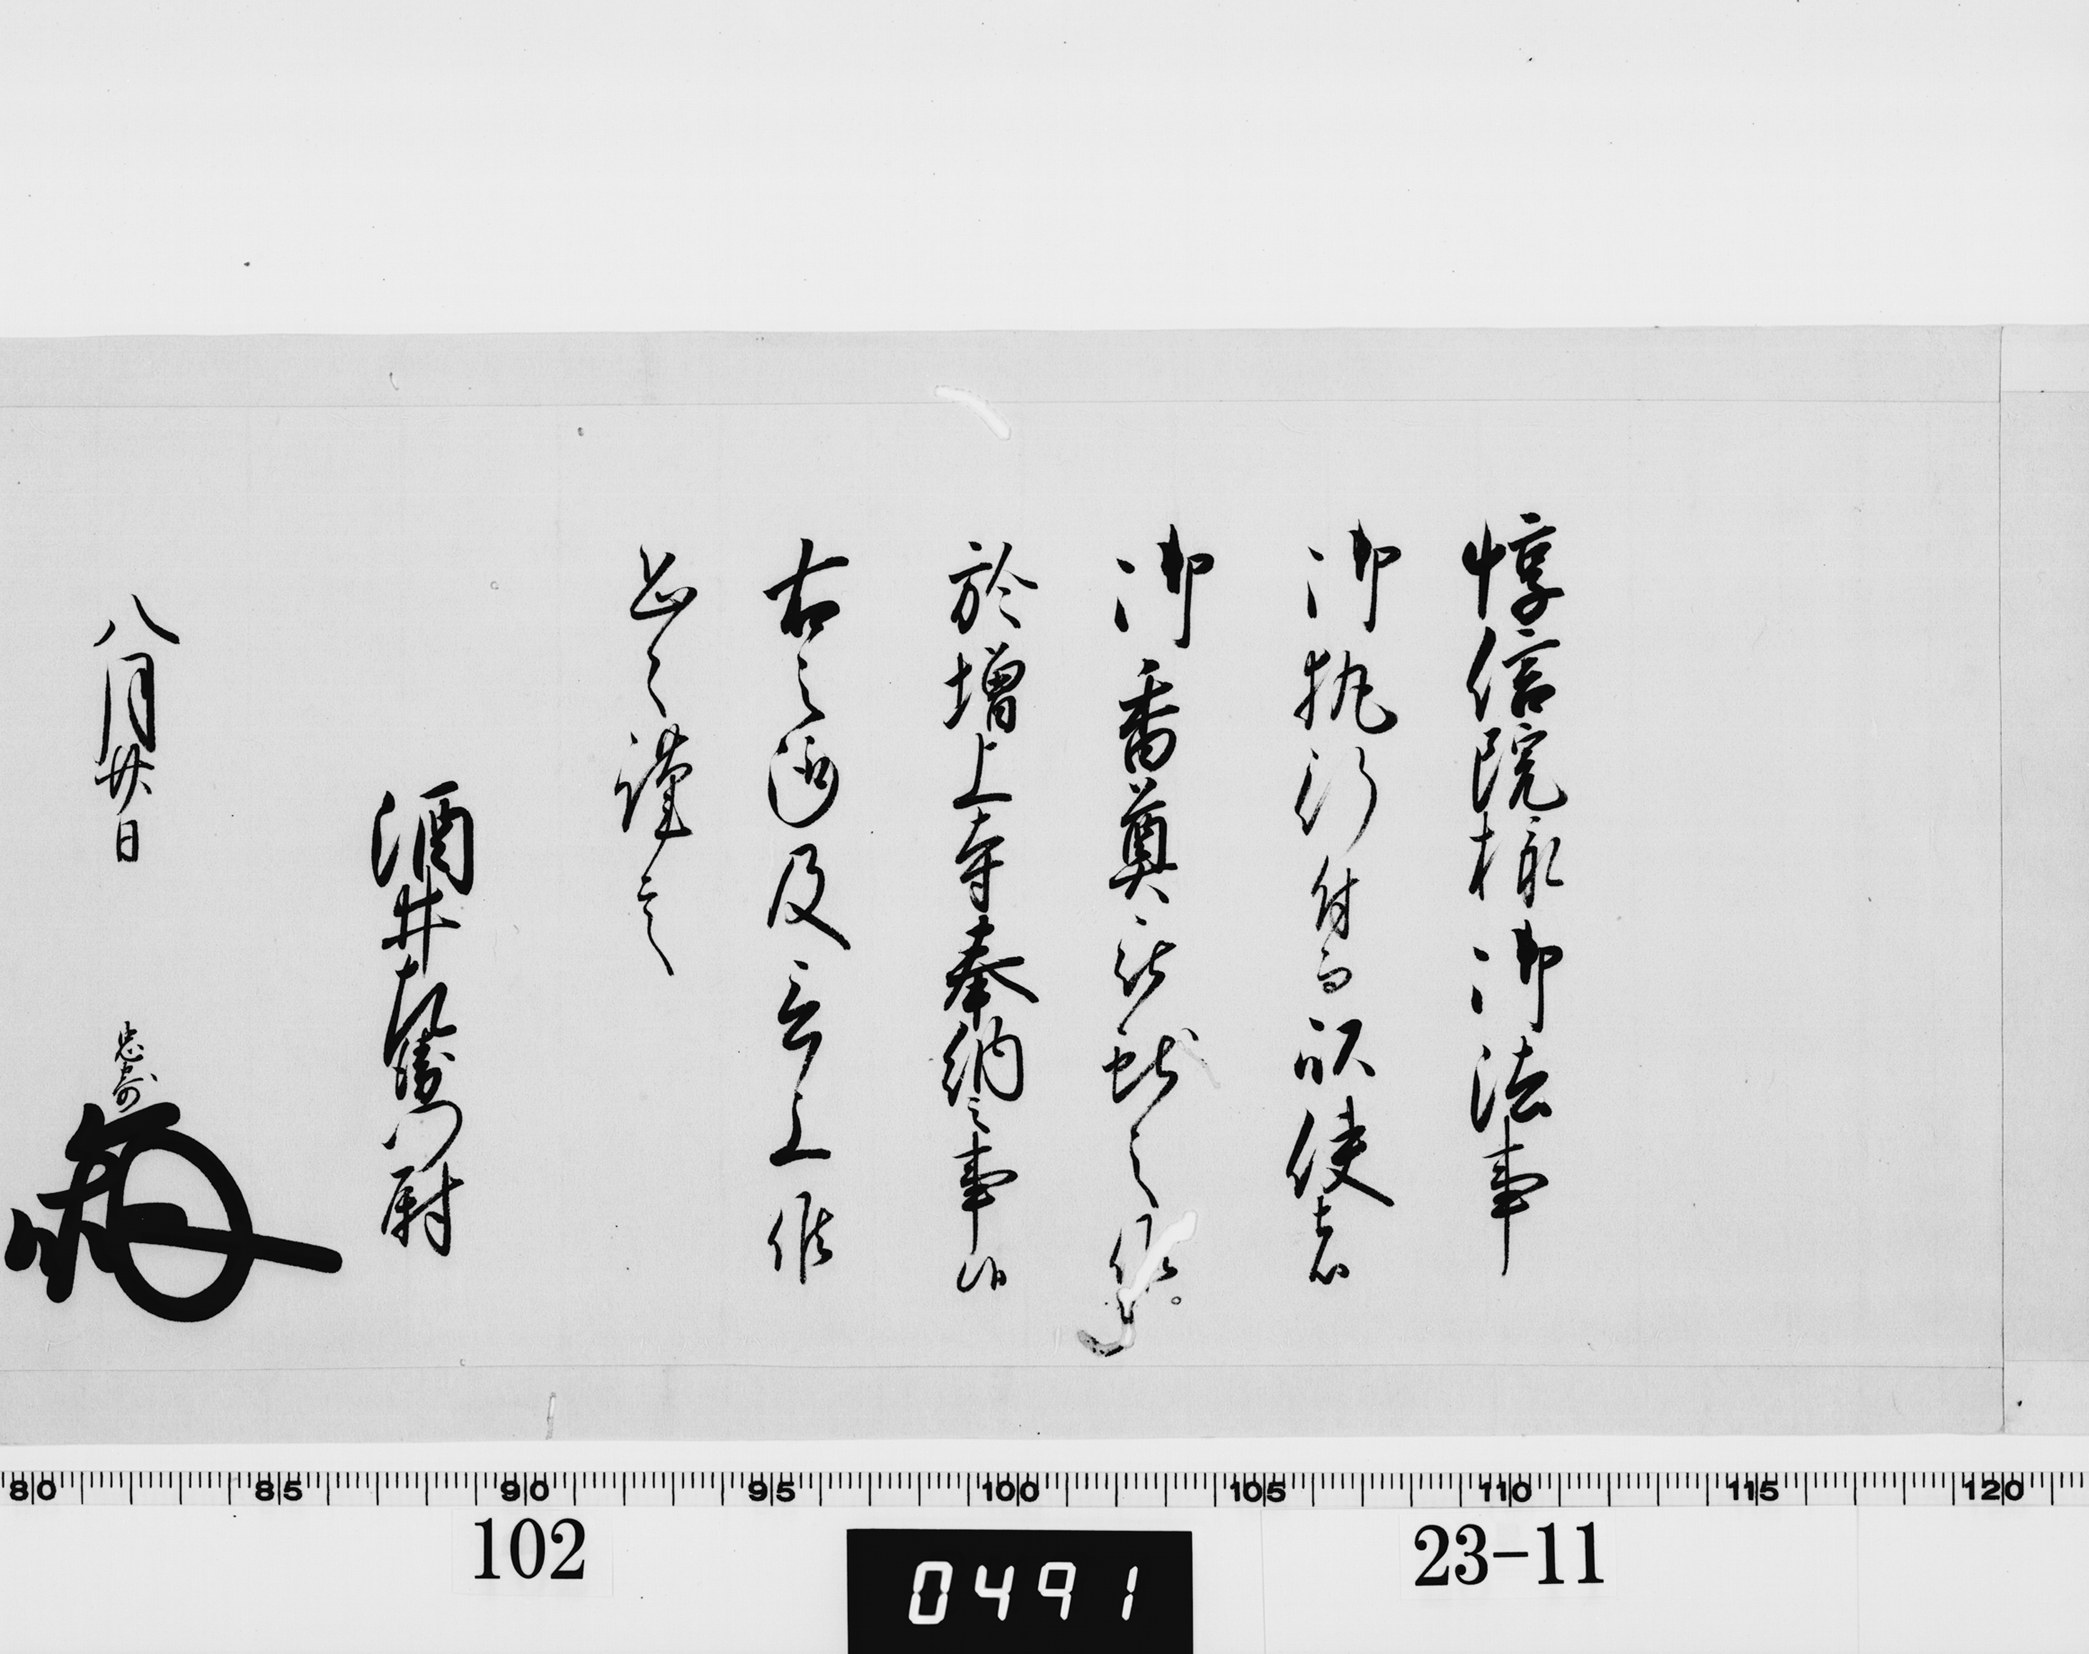 惇信院様御法事
御執行付而被使者
御香奠被献之候
於増上寺奉納之事候
右之通及言上候
恐々謹言
酒井左衛門尉
八月廿日
忠寄
80 85 90 95 100 105 110 115 120
102
0491
23-11